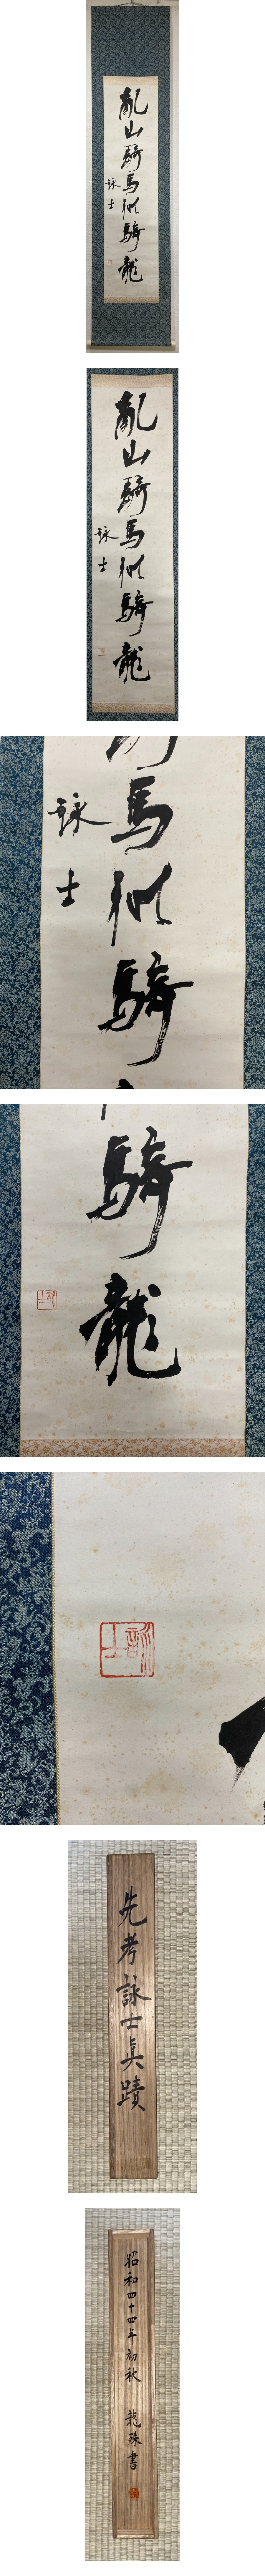 亂山騎馬似騎龍
詠士
亂山騎馬似騎龍
詠士
馬似騎
詠士
騎龍
詠士
先考詠士眞蹟
昭和四十四年初秋 龍珠書